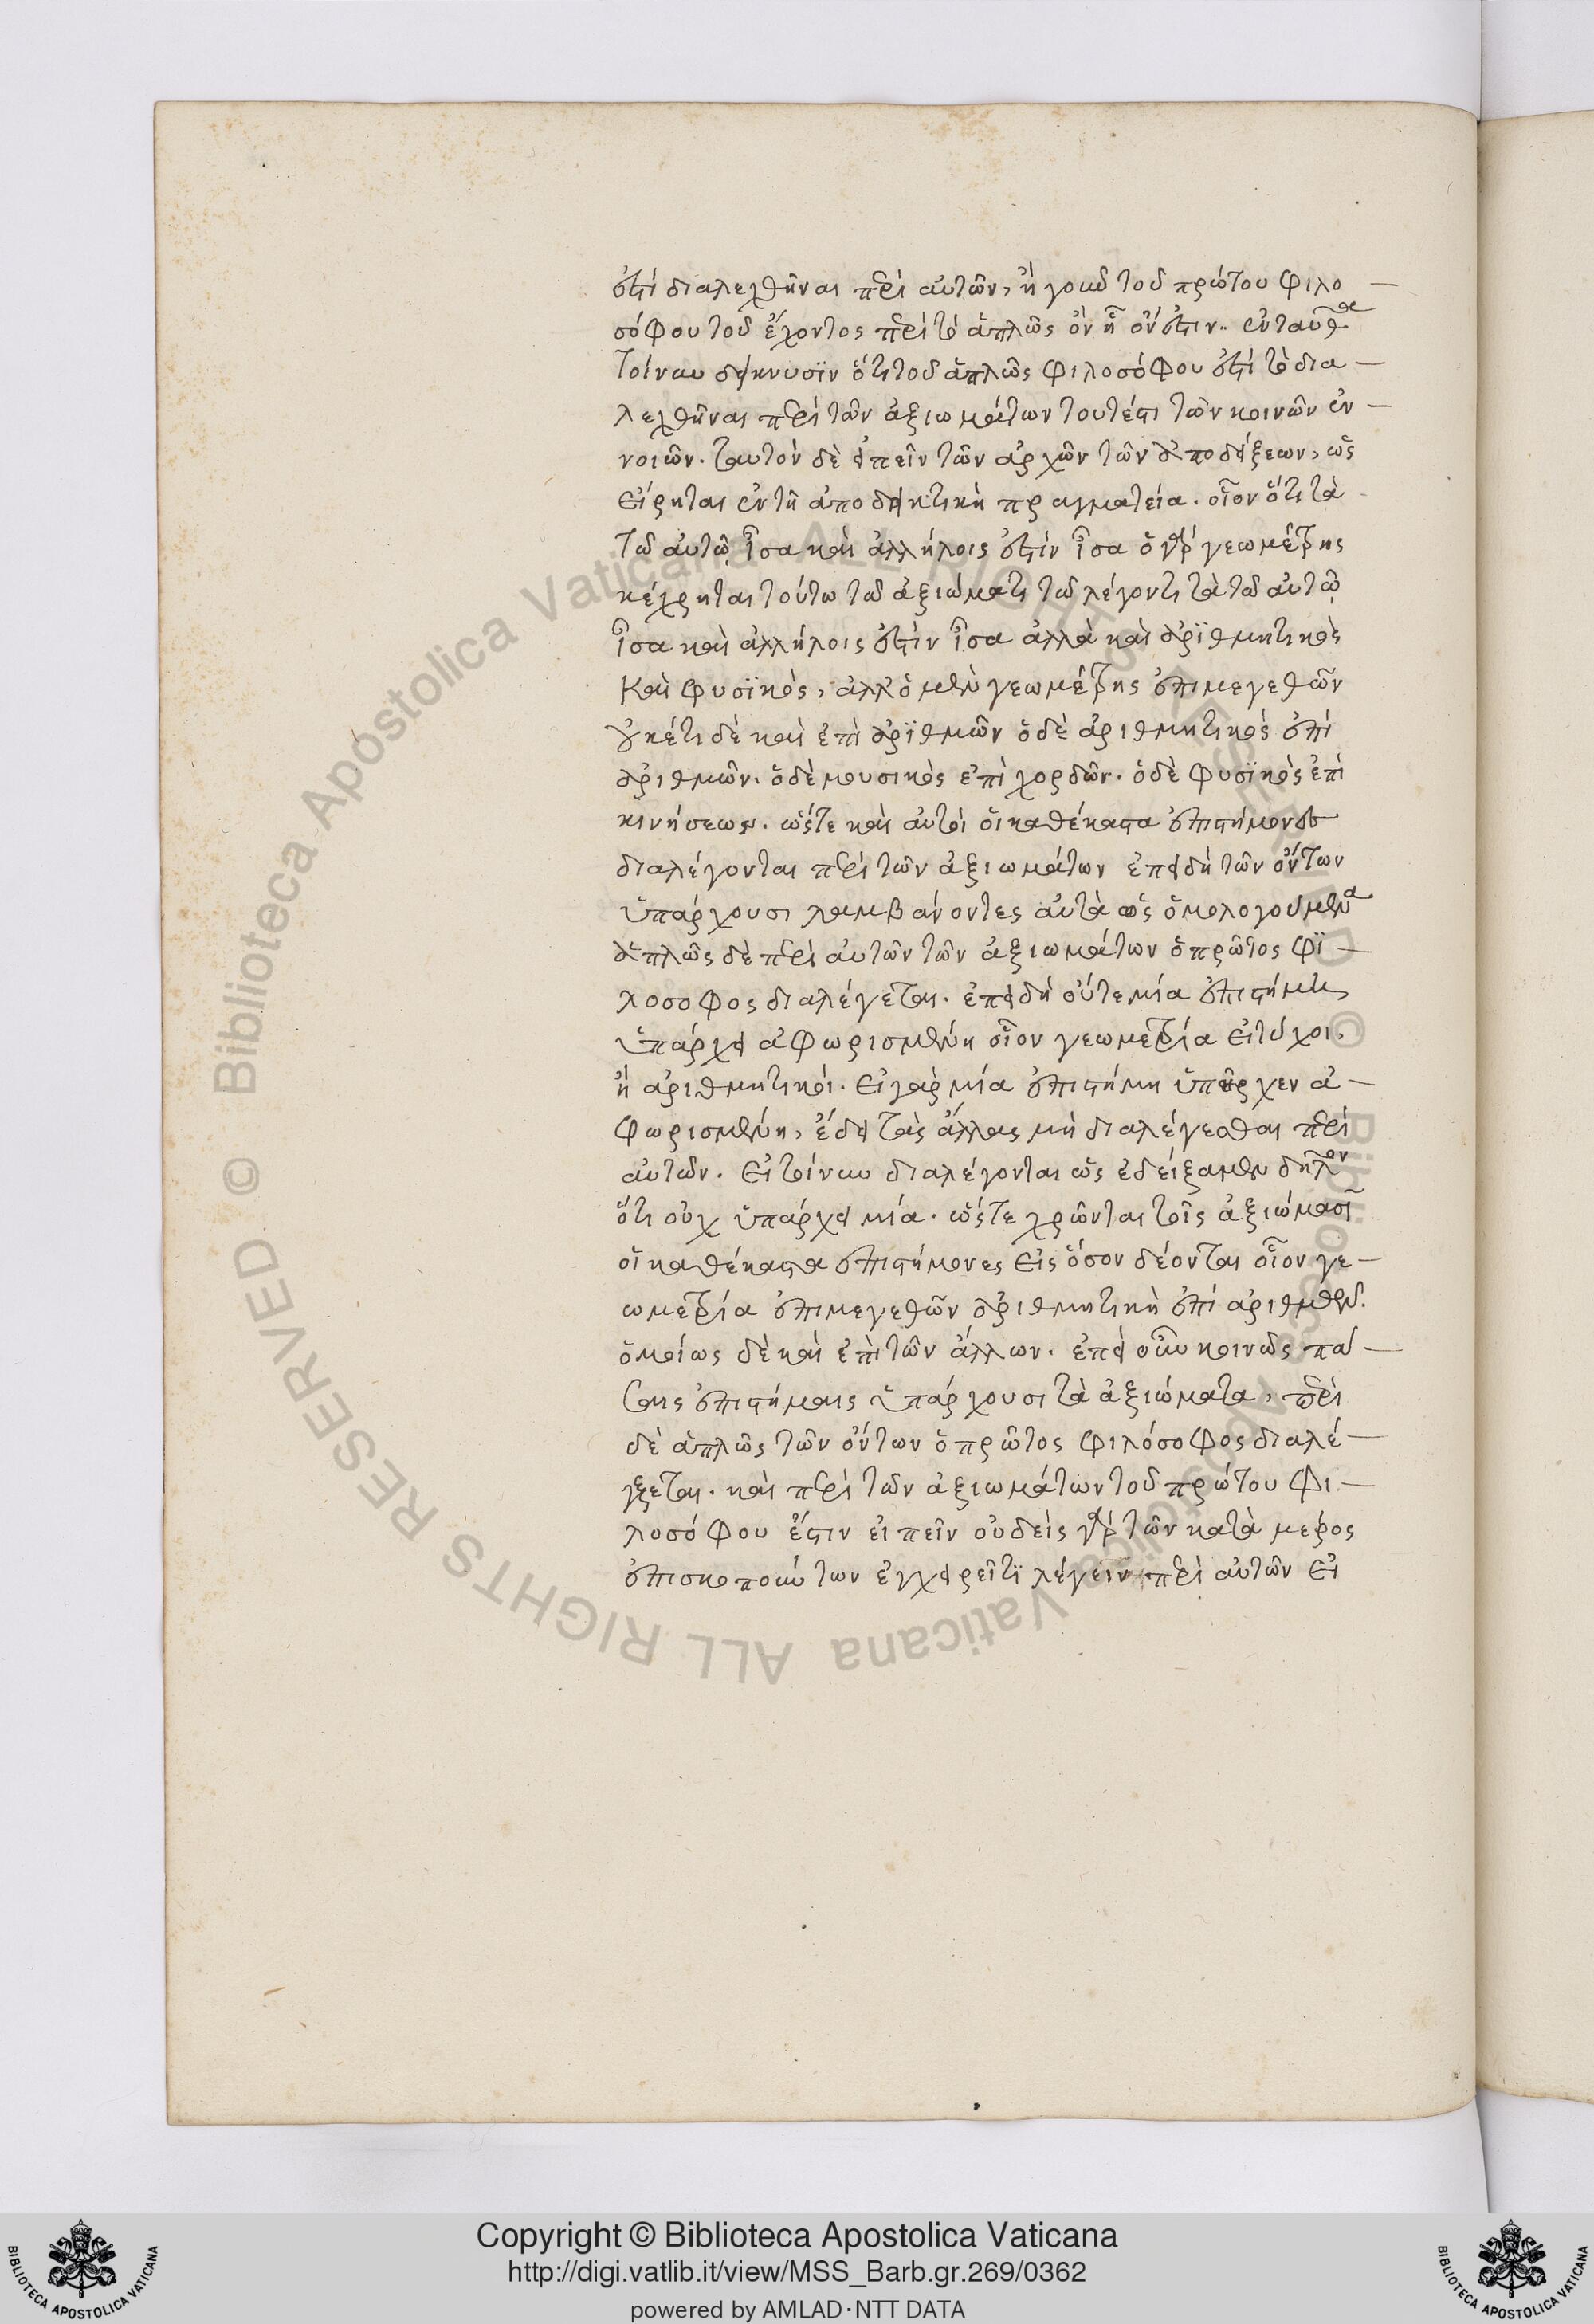 ἐστὶ διαλεχθῆναι περὶ αὐτῶν, ἤγουν τοῦ πρώτου φιλο
σόφου τοῦ ἔχοντος περὶ τὸ ἁπλῶς ὂν ἧ ὄν ἐστιν. ἐνταῦθα
τοίνυν δείκνυσϊν ὅτι τοῦ ἁπλῶς φιλοσόφου ἐστὶ τὸ δια
λεχθῆναι περὶ τῶν ἀξιωμάτων τουτέστι τῶν κοινῶν ἐν
νοιῶν. ταυτὸν δὲ εἰπεῖν τῶν ἀρχῶν τῶν ἀποδείξεων, ὡς
εἴρηται ἐν τῆ ἀποδεικτικὴ πραγματεία. οἷον ὅτι τὰ
τῶ αὐτῶ ἶσα καὶ ἀλλήλοις ἐστὶν ἶσα ὁ γὰρ γεωμέτρης
κέχρηται τούτω τῶ ἀξιώματι τῶ λέγοντι τὰ τῶ αὐτῶ
ἶσα καὶ ἀλλήλοις ἐστὶν ἶσα ἀλλὰ καὶ ἀρϊθμητικὸς
καὶ φυσϊκὸς, ἀλλ' ὁ μὲν γεωμέτρης ἐπὶ μεγεθῶν
οὐκέτι δὲ καὶ ἐπὶ ἀρϊθμῶν ὁ δὲ ἀριθμητικὸς ἐπὶ
ἀριθμῶν. ὁ δὲ μουσικὸς ἐπὶ χορδῶν. ὁ δὲ φυσϊκὸς ἐπὶ
κινήσεως. ὥστε καὶ αὐτοὶ οἱ καθέκαστα ἐπιστήμονες
διαλέγονται περὶ τῶν ἀξιωμάτων ἐπειδὴ τῶν ὄντων
ὑπάρχουσι λαμβάνοντες αὐτὰ ὡς ὁμολογούμενα
ἁπλῶς δὲ περὶ αὐτῶν τῶν ἀξιωμάτων ὁ πρῶτος φϊ
λοσοφος διαλέγεται. ἐπειδὴ οὔτε μία ἐπιστήμης
ὑπάρχει ἀφωρισμένη οἷον γεωμετρία εἰ τύχοι,
ἢ ἀριθμητικὸι. εἰ γὰρ μία ἐπιστήμη ὑπῆρχεν ἀ
φωρισμένη, ἔδει τὰς ἄλλας μὴ διαλέγεσθαι περὶ
αὐτῶν. εἰ τοίνυν διαλέγονται ὡς ἐδείξαμεν δῆλον
ὅτι οὐχ ὑπάρχει μία. ὥστε χρῶνται τοῖς ἀξιώμασι
οἱ καθέκαστα ἐπιστήμονες εἰς ὅσον δέονται οἷον γε
ωμετρία ἐπὶ μεγεθῶν ἀριθμητικὴ ἐπὶ ἀριθμῶν.
ὁμοίως δὲ καὶ ἐπὶ τῶν ἄλλων. ἐπεὶ οὖν κοινῶς πά
σαις ἐπιστήμαις ὑπάρχουσι τὰ ἀξιώματα, περὶ
δὲ ἁπλῶς τῶν ὄντων ὁ πρῶτος φιλόσοφος διαλέ
ξεται. καὶ περὶ τῶν ἀξιωμάτων τοῦ πρώτου φι
λοσόφου ἔστιν εἰπεῖν οὐδεὶς γὰρ τῶν κατὰ μέρος
ἐπισκοπούντων ἐγχειρεῖ τϊ λέγειν περὶ αὐτῶν εἰ
Copyright © Biblioteca Apostolica Vaticana
http://digi.vatlib.it/view/MSS_Barb.gr.269/0362
powered by AMLAD·NTT DATA
BIBLIOTECA APOSTOLICA VATICANA
BIBLIOTECA APOSTOLICA VATICANA
© Biblioteca Apostolica Vaticana ALL RIGHTS RESERVED
© Biblioteca Apostolica Vaticana ALL RIGHTS RESERVED